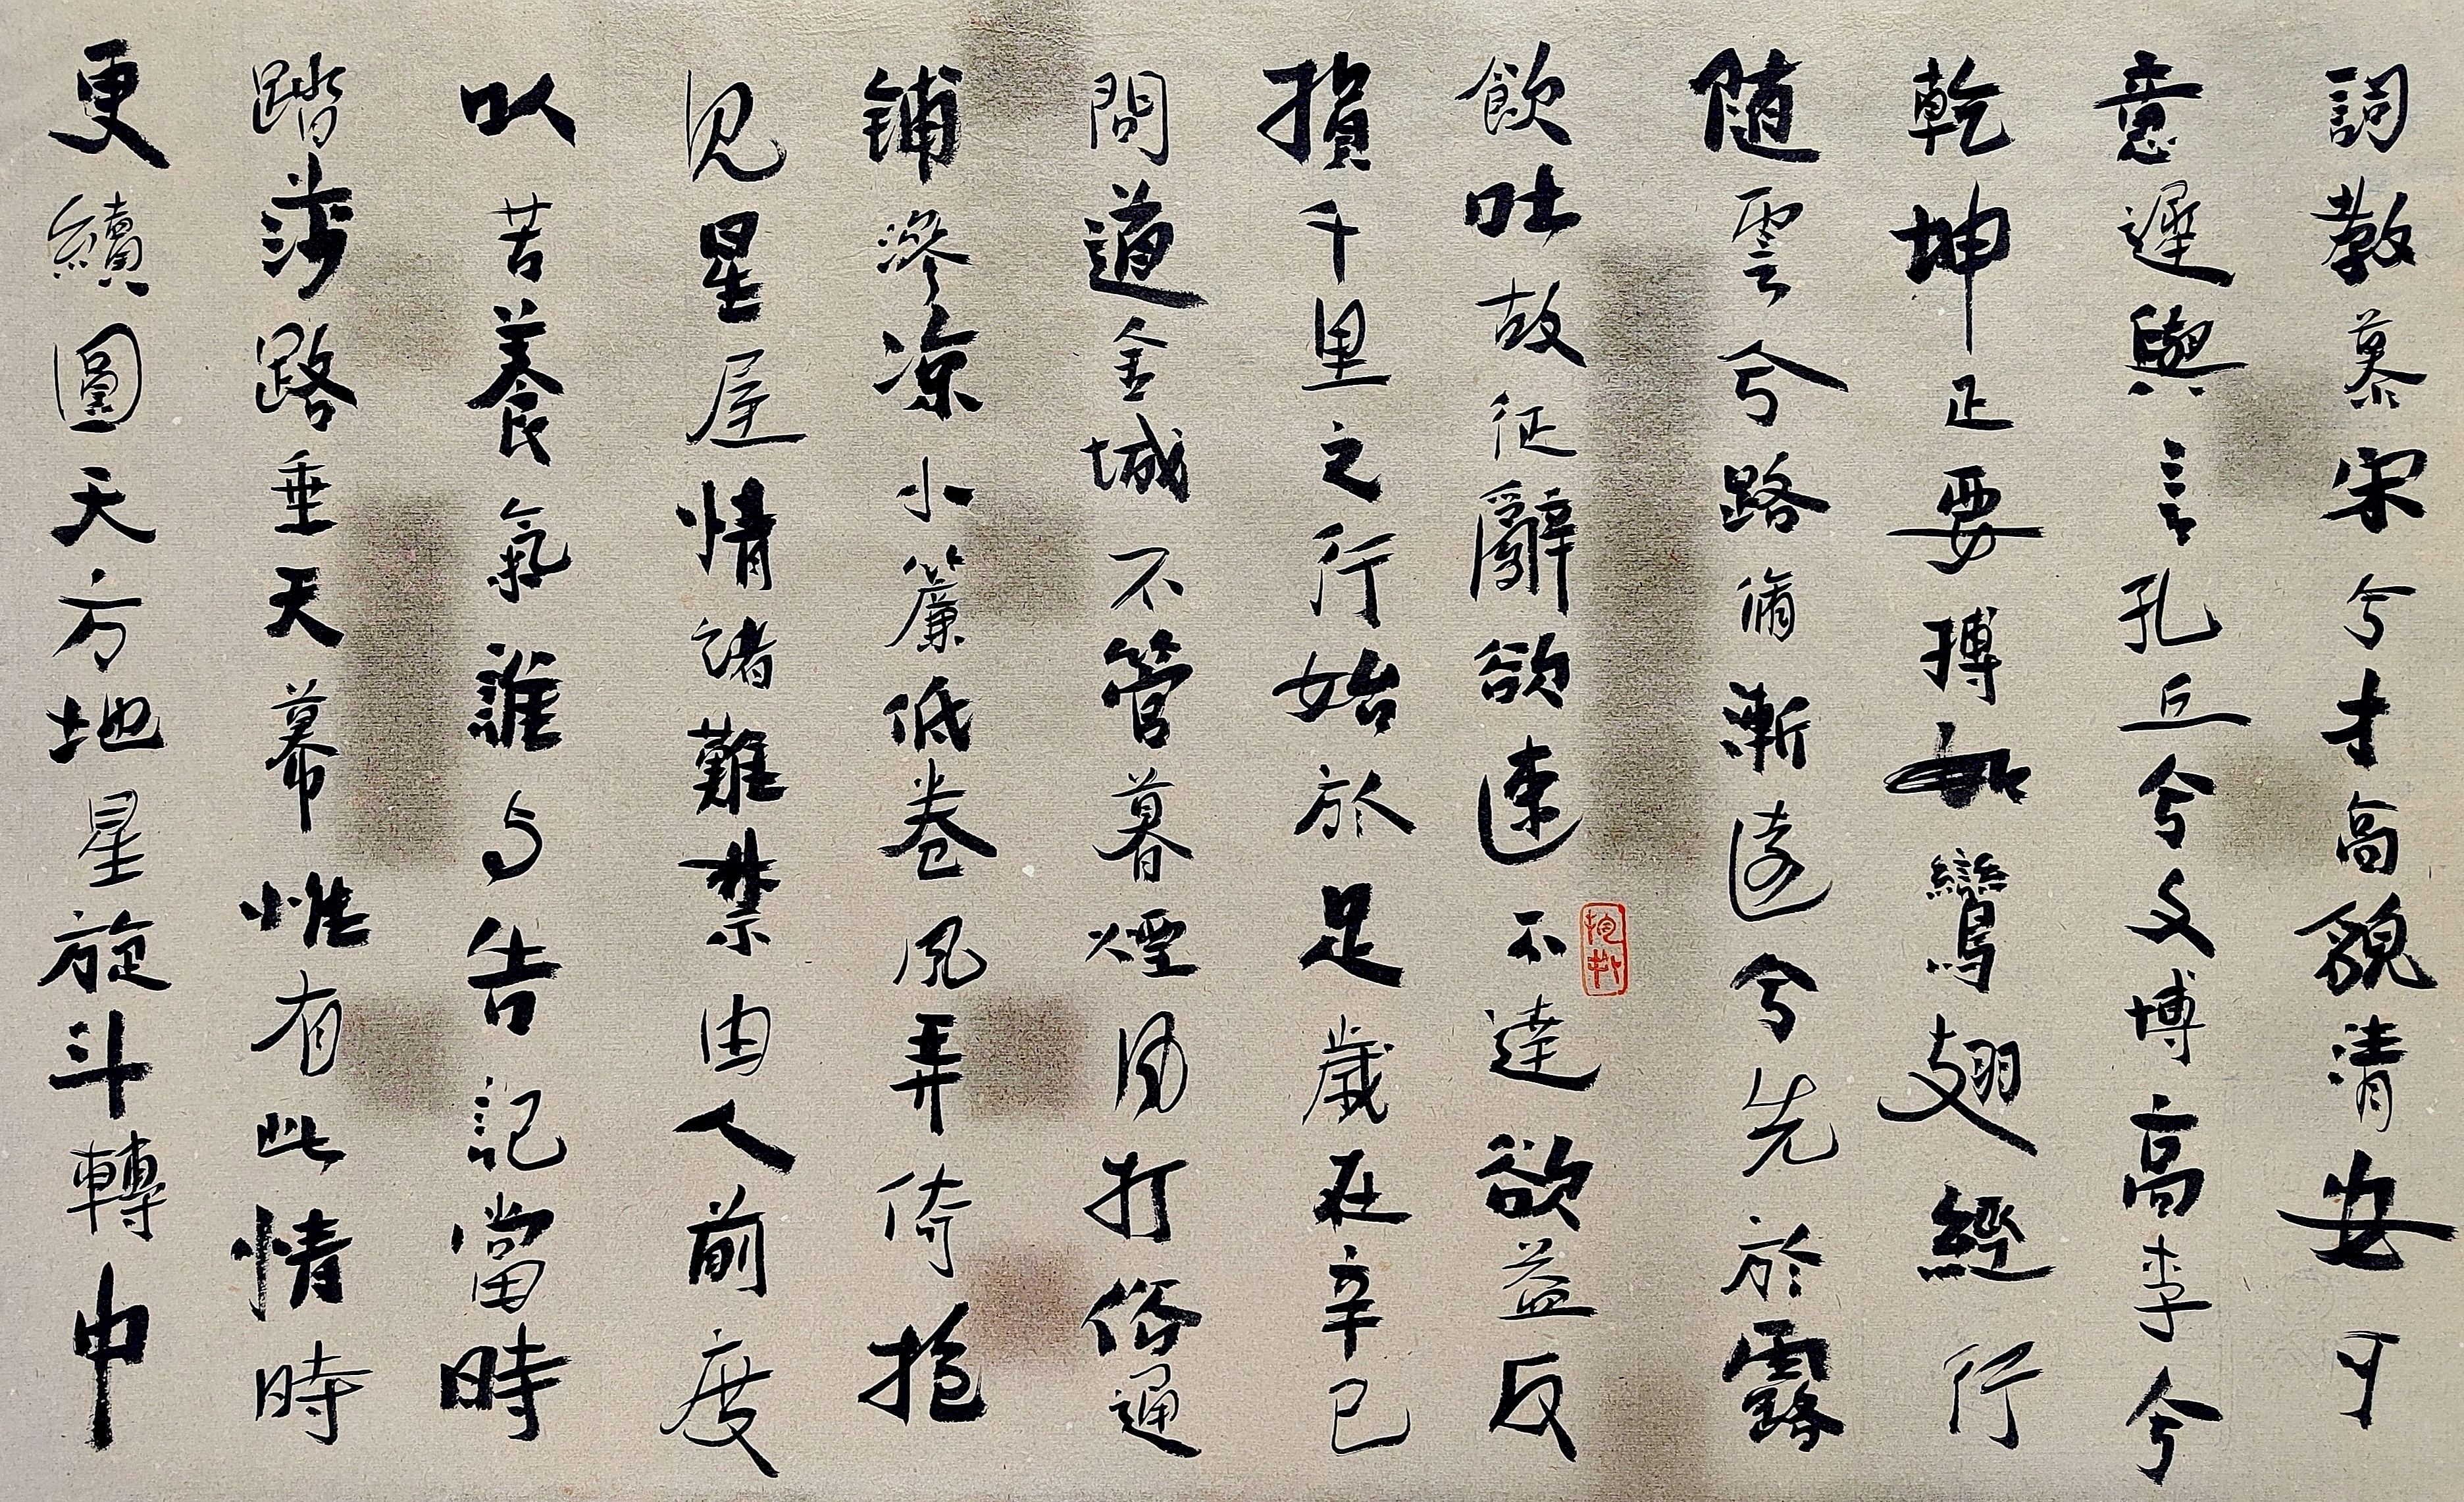 詞教慕宋兮才高貌清安可
意遲與言孔丘兮文博高李兮
乾坤正要摶如鸞翅經行
随雲兮路脩漸遠兮先於露
飲吐故征辭欲速不達欲益反
損千里之行始於足歲在辛巳
間道金城不管暮煙風打俗通
铺滲凉小簾低卷風弄倚抱
见星屋情諸難禁由人前度
以苦養氣誰与告記當時
踏莎路垂天幕惟有此情時
更續圓天方地星旋斗轉中